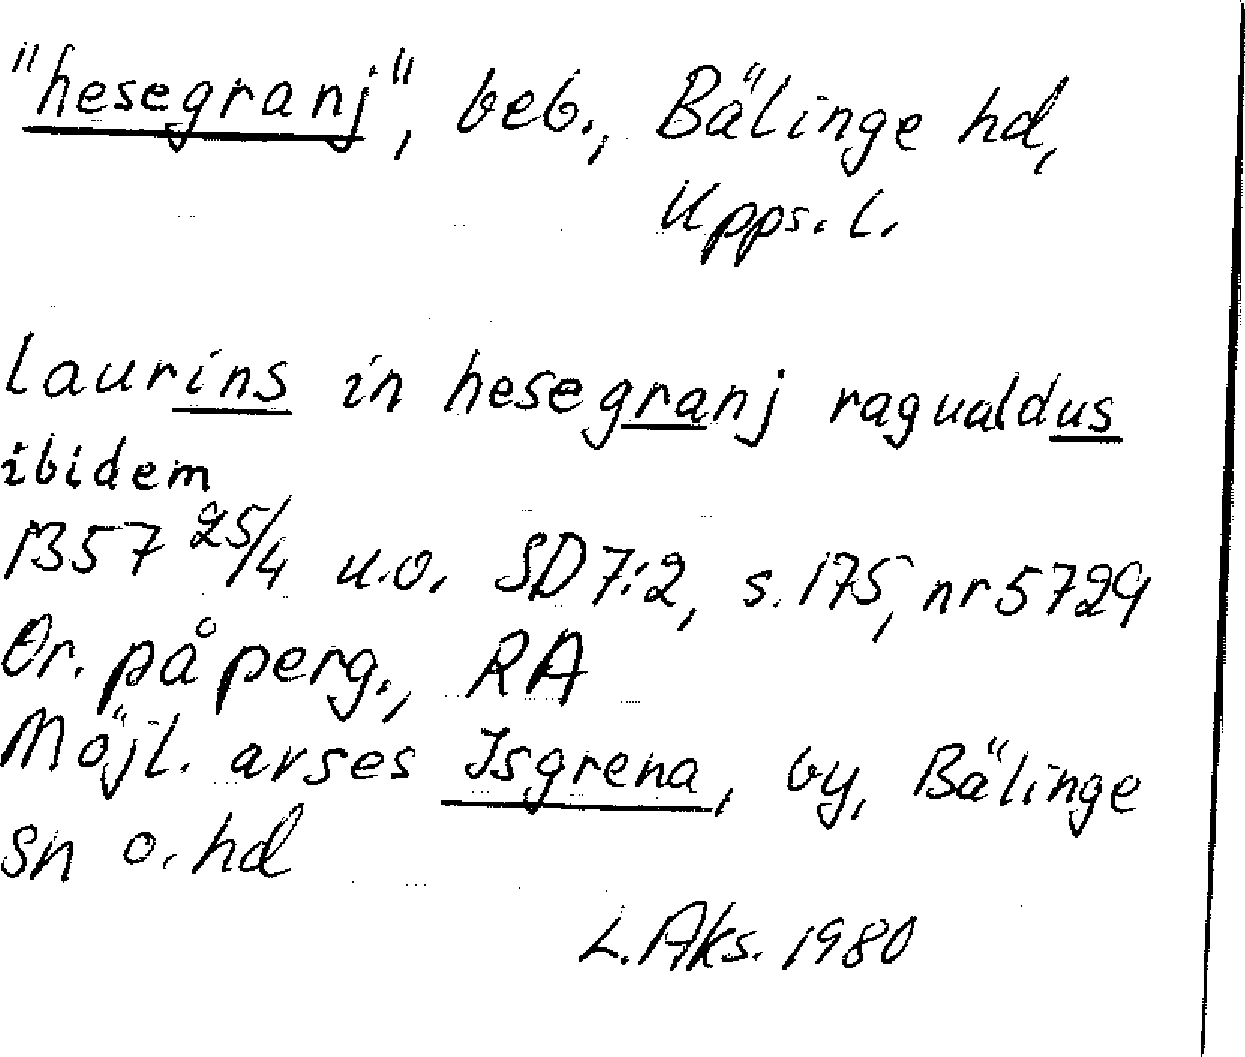 "hesegranj", beb., Bälinge hd,
Upps. l.
laurins in hesegranj ragualdus
ibidem
1357 25/4 u.o. SD 7:2, s. 175, nr 5729
Or. på perg., RA
Möjl. avses Isgrena, by, Bälinge
sn o. hd
L. Aks. 1980